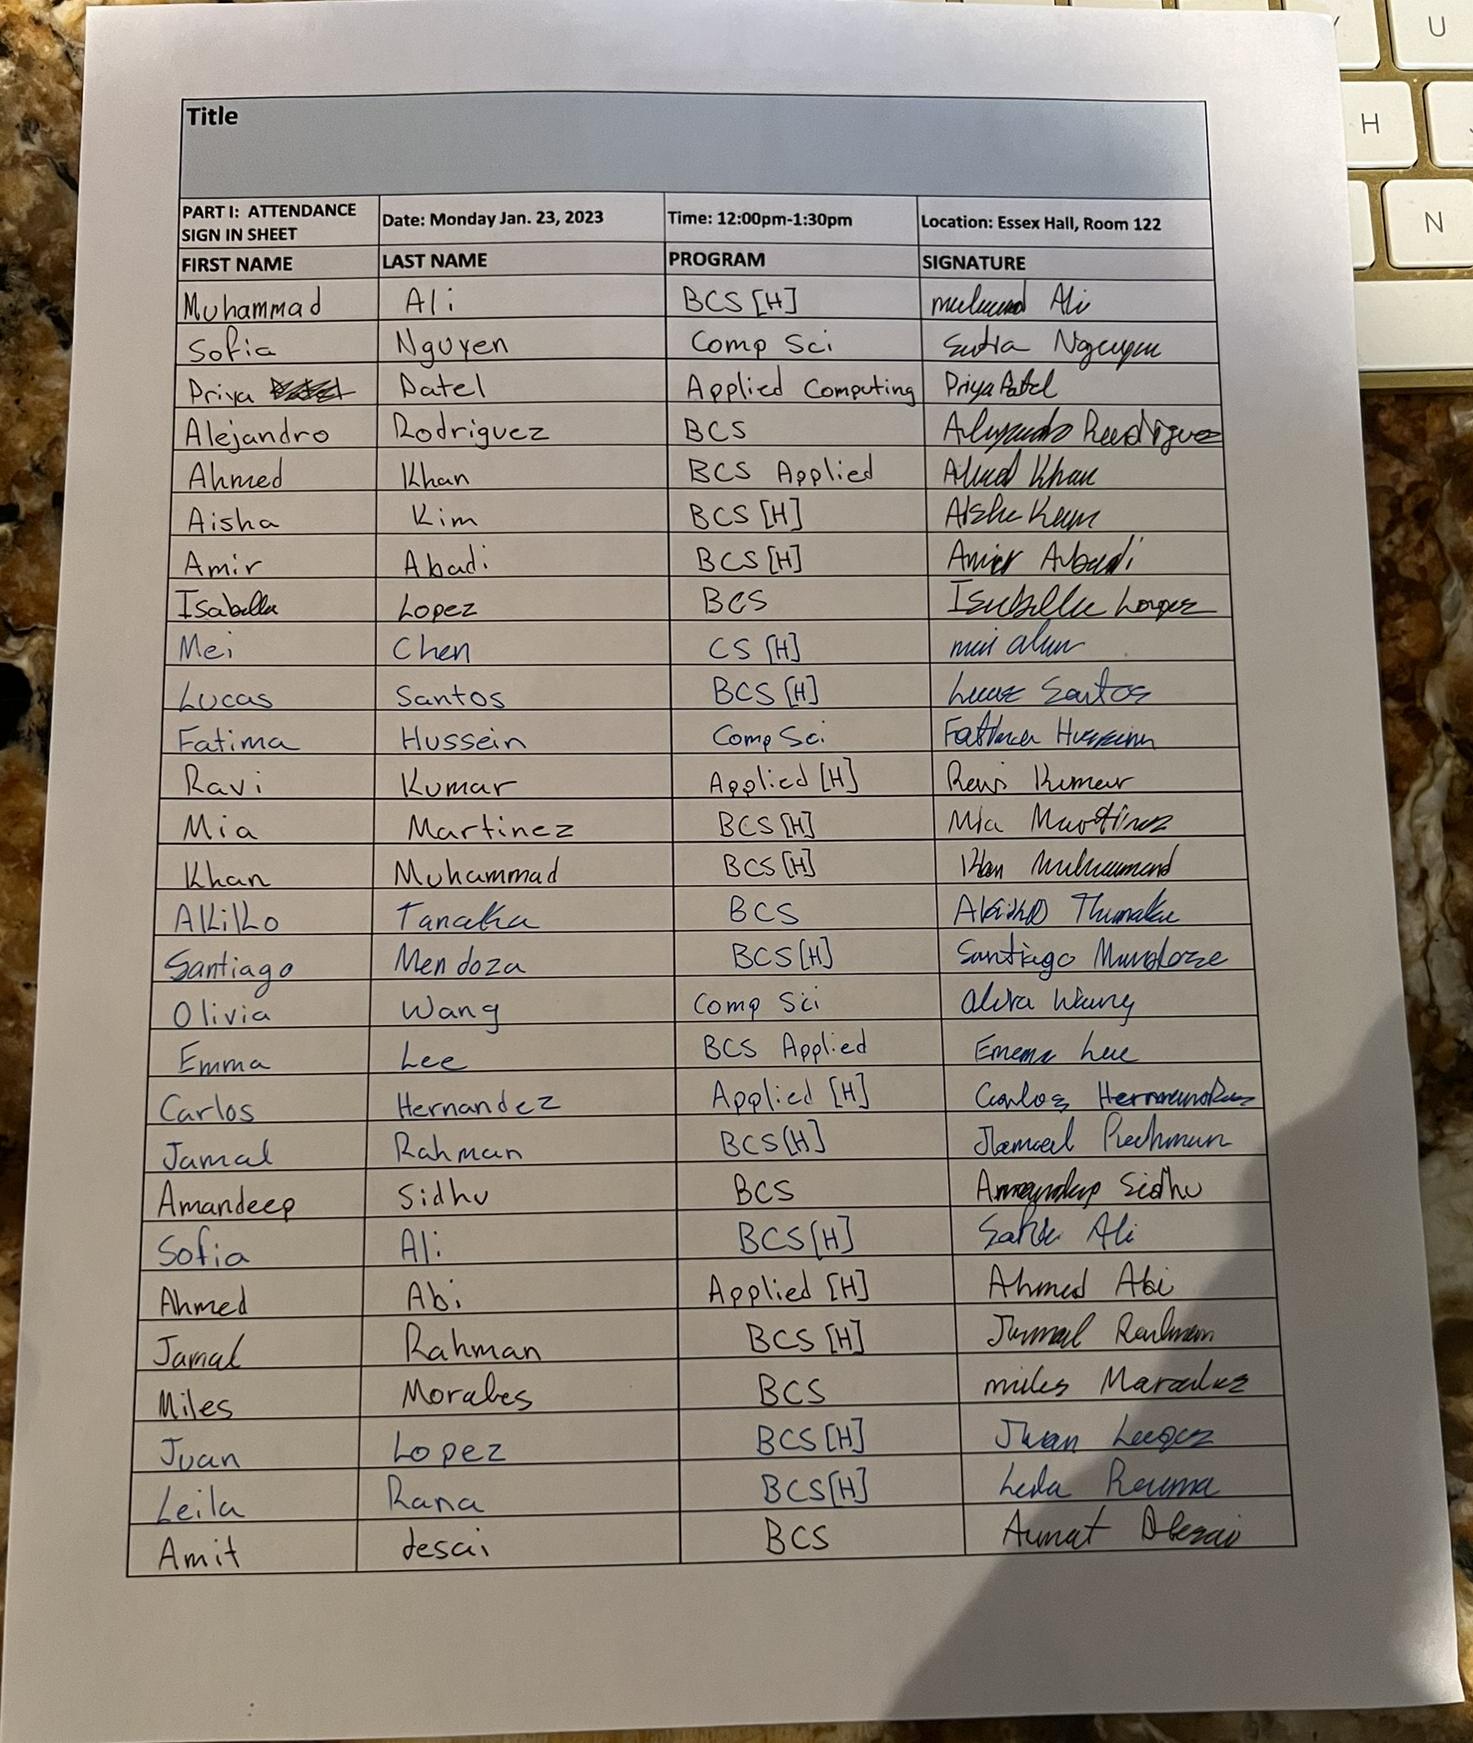 Title
PART I: ATTENDANCE SIGN IN SHEET Date: Monday Jan. 23, 2023 Time: 12:00pm-1:30pm Location: Essex Hall, Room 122
FIRST NAME LAST NAME PROGRAM SIGNATURE
Muhammad Ali BCS [H] Ali
Sofia Nguyen Comp Sci Nguyen
Priya Patel Applied Computing Priya Patel
Alejandro Rodriguez BCS Alejandro Rodriguez
Ahmed Khan BCS Applied Ahmed Khan
Aisha Kim BCS [H] Aisha Kim
Amir Abadi BCS [H] Amir Abadi
Isabella Lopez BCS Isabella Lopez
Mei Chen CS [H] mei
Lucas Santos BCS [H] Lucas Santos
Fatima Hussein Comp Sci Fatima Hussein
Ravi Kumar Applied [H] Ravi Kumar
Mia Martinez BCS [H] Mia Martinez
Khan Muhammad BCS [H] Khan Muhammad
Akiko Tanaka BCS Akiko
Santiago Mendoza BCS [H] Santiago Mendoza
Olivia Wang Comp Sci Wang
Emma Lee BCS Applied Emma Lee
Carlos Hernandez Applied [H] Carlos Hernandez
Jamal Rahman BCS [H] Jamal Rahman
Amandeep Sidhu BCS Amandeep Sidhu
Sofia Ali BCS [H] Ali
Ahmed Abi Applied [H] Ahmed Abi
Jamal Rahman BCS [H] Jamal Rahman
Miles Morales BCS miles
Juan Lopez BCS [H] Juan Lopez
Leila Rana BCS [H] Leila
Amit desai BCS
U
H
N